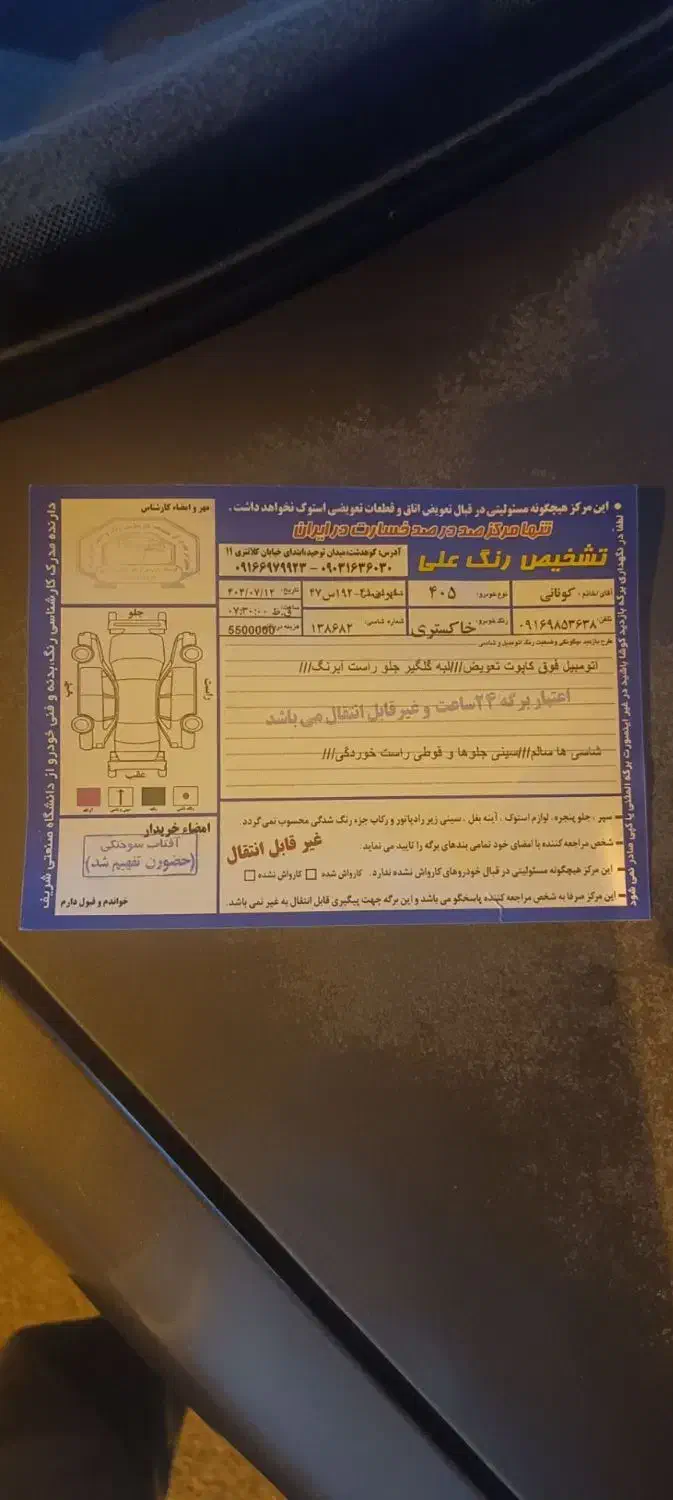 این مرکز هیچگونه مسئولیتی در قبال تعویض اتاق و قطعات تعویضی استوک نخواهد داشت .
تنها مرکز صد در صد خسارت در ایران
تشخیص رنگ علی
آدرس: کوهدشت،میدان توحید،ابتدای خیابان کلانتری ۱۱
۰۹۰۳۱۶۳۶۰۳۰ – ۰۹۱۶۶۹۷۹۹۲۳
آقای/خانم : کونانی
نوع خودرو: ۴۰۵
۱۹۲س۴۷
تاریخ: ۴۰۳/۰۷/۱۲
تلفن: ۰۹۱۶۹۸۵۳۶۳۸
رنگ خودرو: خاکستری
شماره شاسی: ۱۳۸۶۸۲
ساعت: ۰۷:۳۰:۰۰ ق.ظ
هزینه 5500000
اتومبیل فوق کاپوت تعویض///لبه گلگیر جلو راست لیرنگ///
اعتبار برگه ۲۴ساعت و غیرقابل انتقال می باشد
شاسی ها سالم///سینی جلوها و قوطی راست خوردگی///
سپر ، جلو پنجره، لوازم استوک ، آینه بغل ، سینی زیر رادیاتور و رکاب جزء رنگ شدگی محسوب نمی گردد.
شخص مراجعه کننده با امضای خود تمامی بندهای برگه را تایید می نماید.
غیر قابل انتقال
این مرکز هیچگونه مسئولیتی در قبال خودروهای کارواش نشده ندارد. کارواش شده کارواش نشده
این مرکز صرفا به شخص مراجعه کننده پاسخگو می باشد و این برگه جهت پیگیری قابل انتقال به غیر نمی باشد.
مهر و امضاء کارشناس
جلو
راست
چپ
عقب
امضاء خریدار
آفتاب سوختگی
(حضورن تفهیم شد)
خواندم و قبول دارم
دارنده مدرک کارشناسی رنگ،بدنه و فنی خودرو از دانشگاه صنعتی شریف
لطفا در نگهداری برگه بازدید کوشا باشید در غیر اینصورت برگه المثنی یا کپی صادر نمی شود